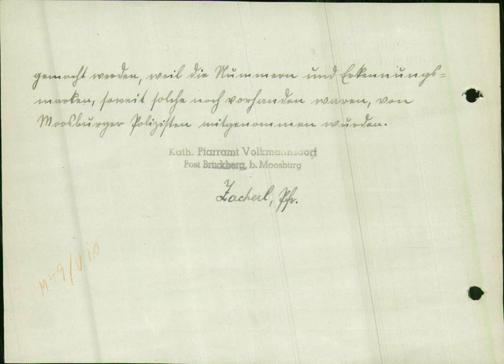 gemacht werden, weil die Nummern und Erkennungs-
marken, soweit solche noch vorhanden waren, von
Moosburger Polizisten mitgenommen wurden.
Kath. Pfarramt Volkmannsdorf
Post Bruckberg, b. Moosburg
Zacherl, Pfr.